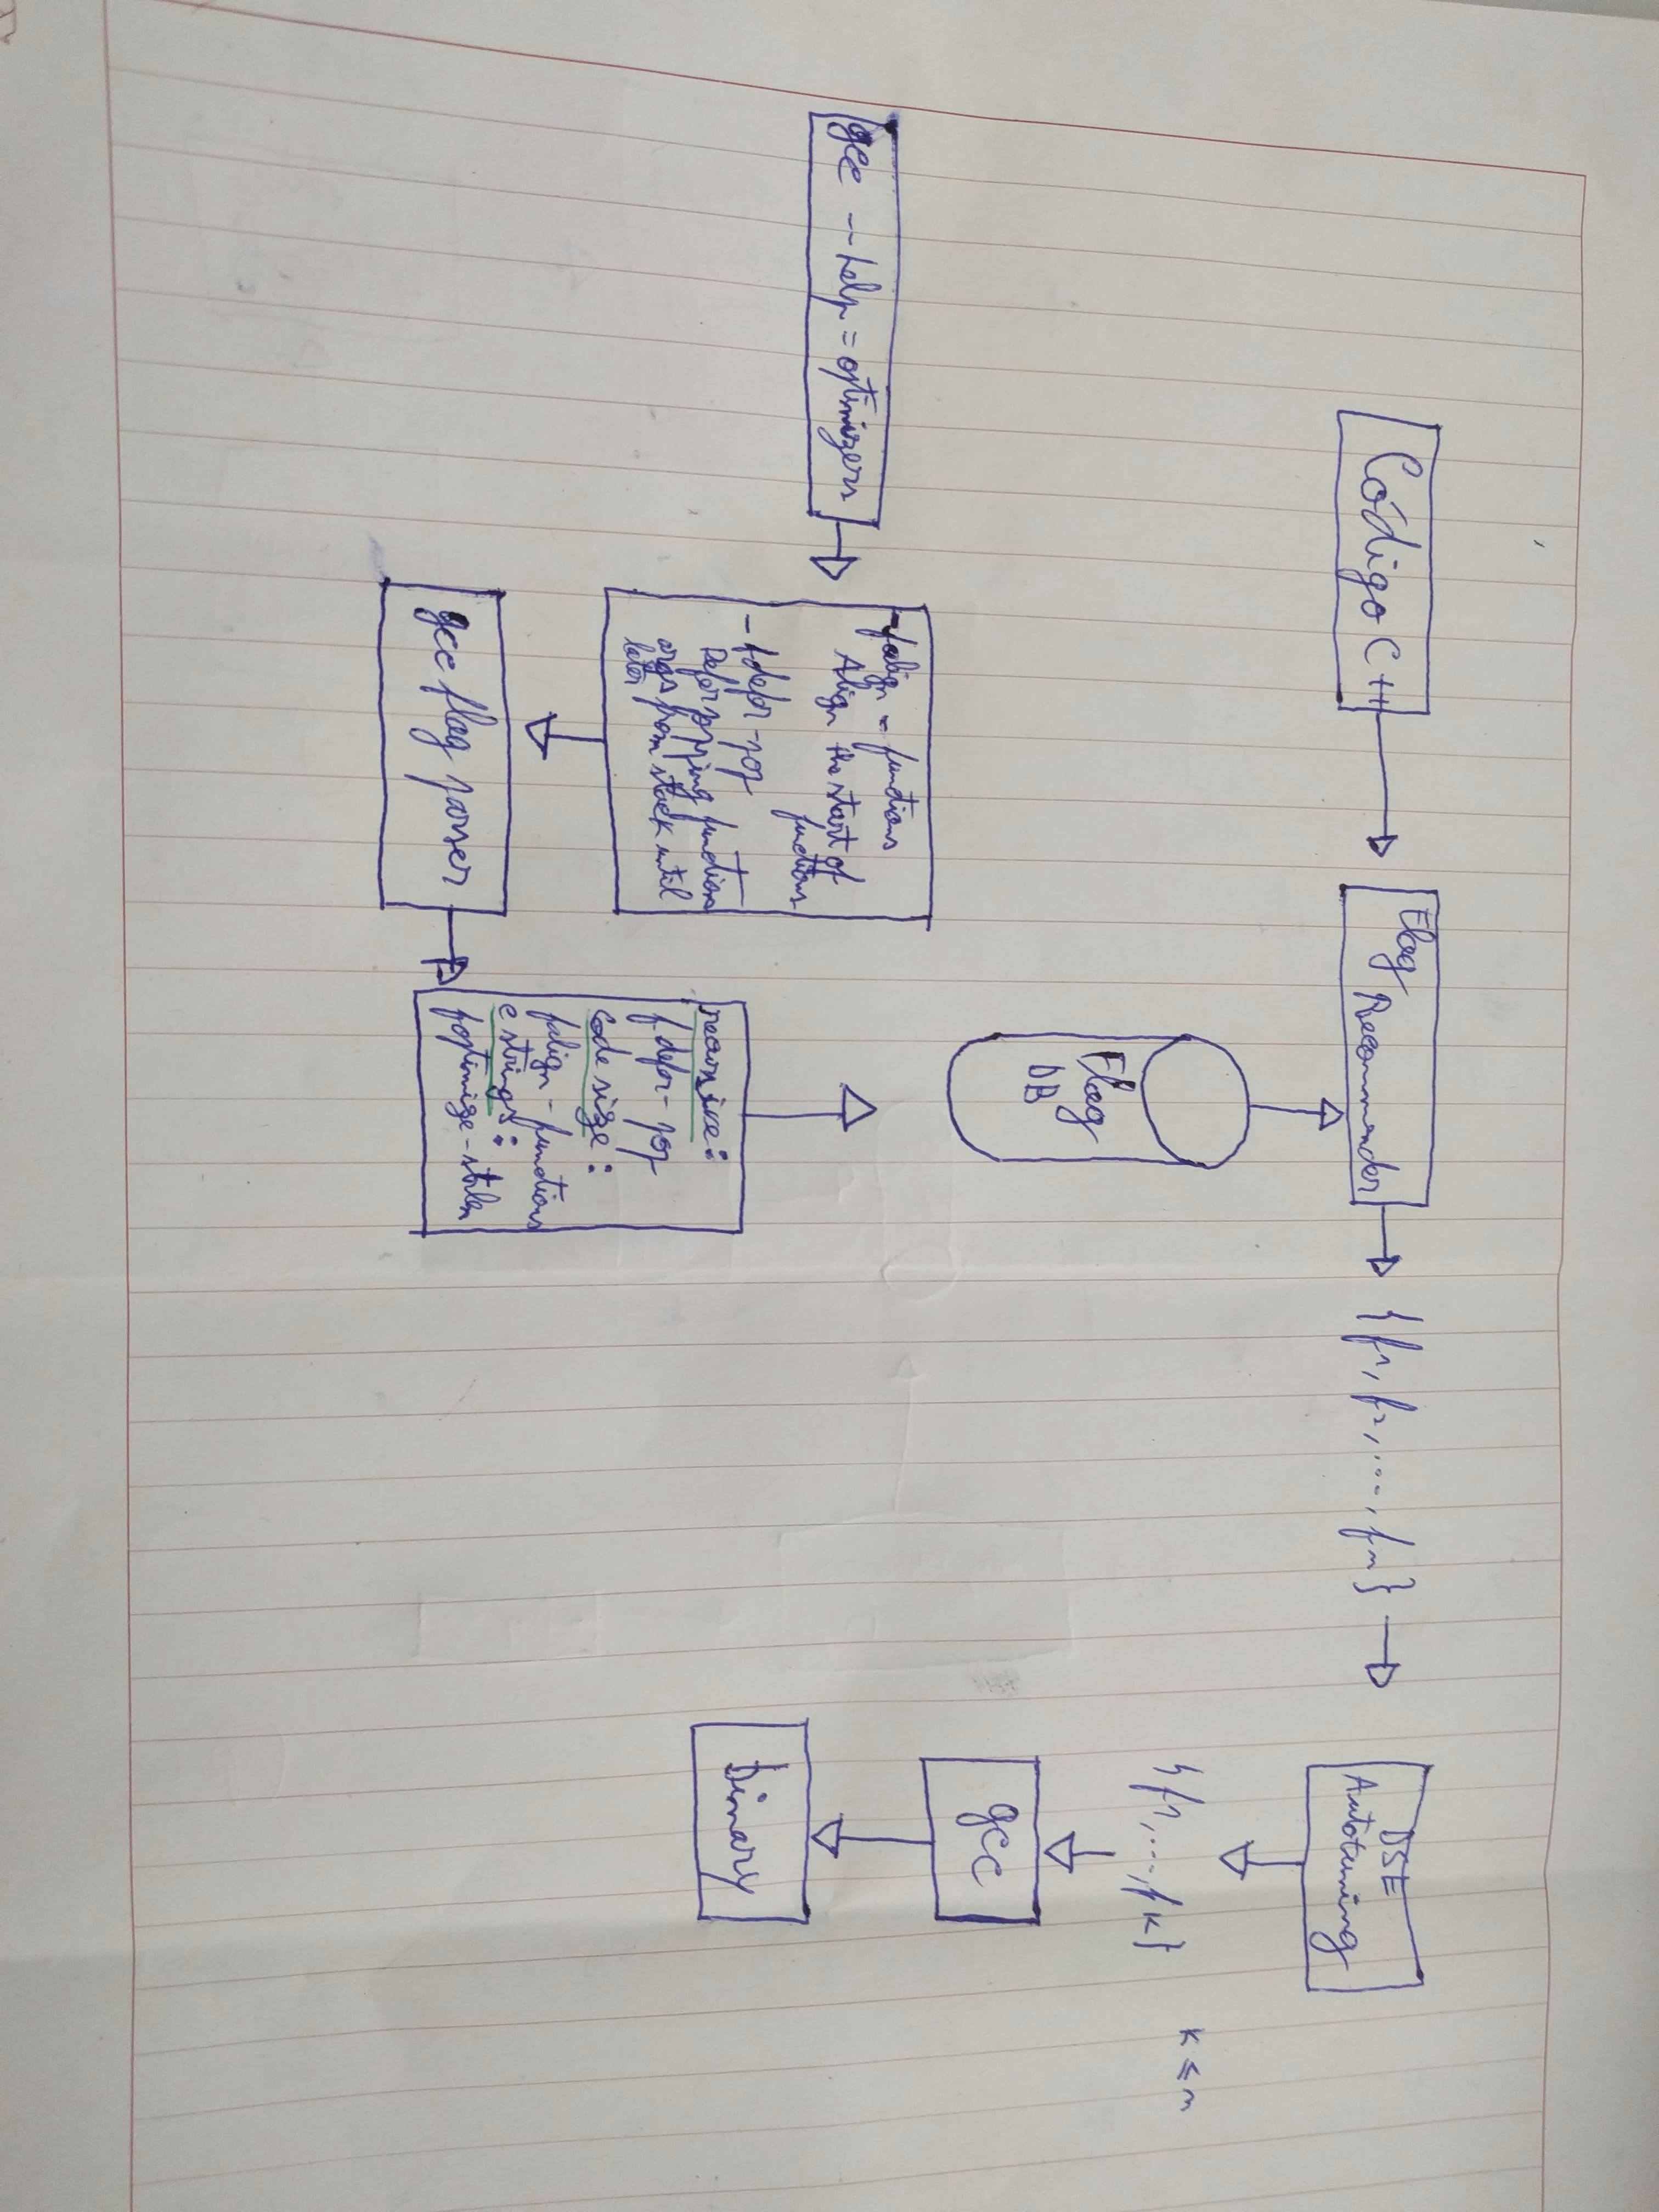 Código C++
Flag
Recommender
{f1, f2, ..., fn}
DSE
Autotuning
{f1, ..., fk}
k ≤ n
gcc
binary
Flag
DB
gcc --help=optimizers
-falign-functions
Align the start of
functions
-fdefer-pop
Defer popping functions
args from stack until
later
gcc flag parser
recursive:
fdefer-pop
code size:
falign-functions
c strings:
foptimize-strlen